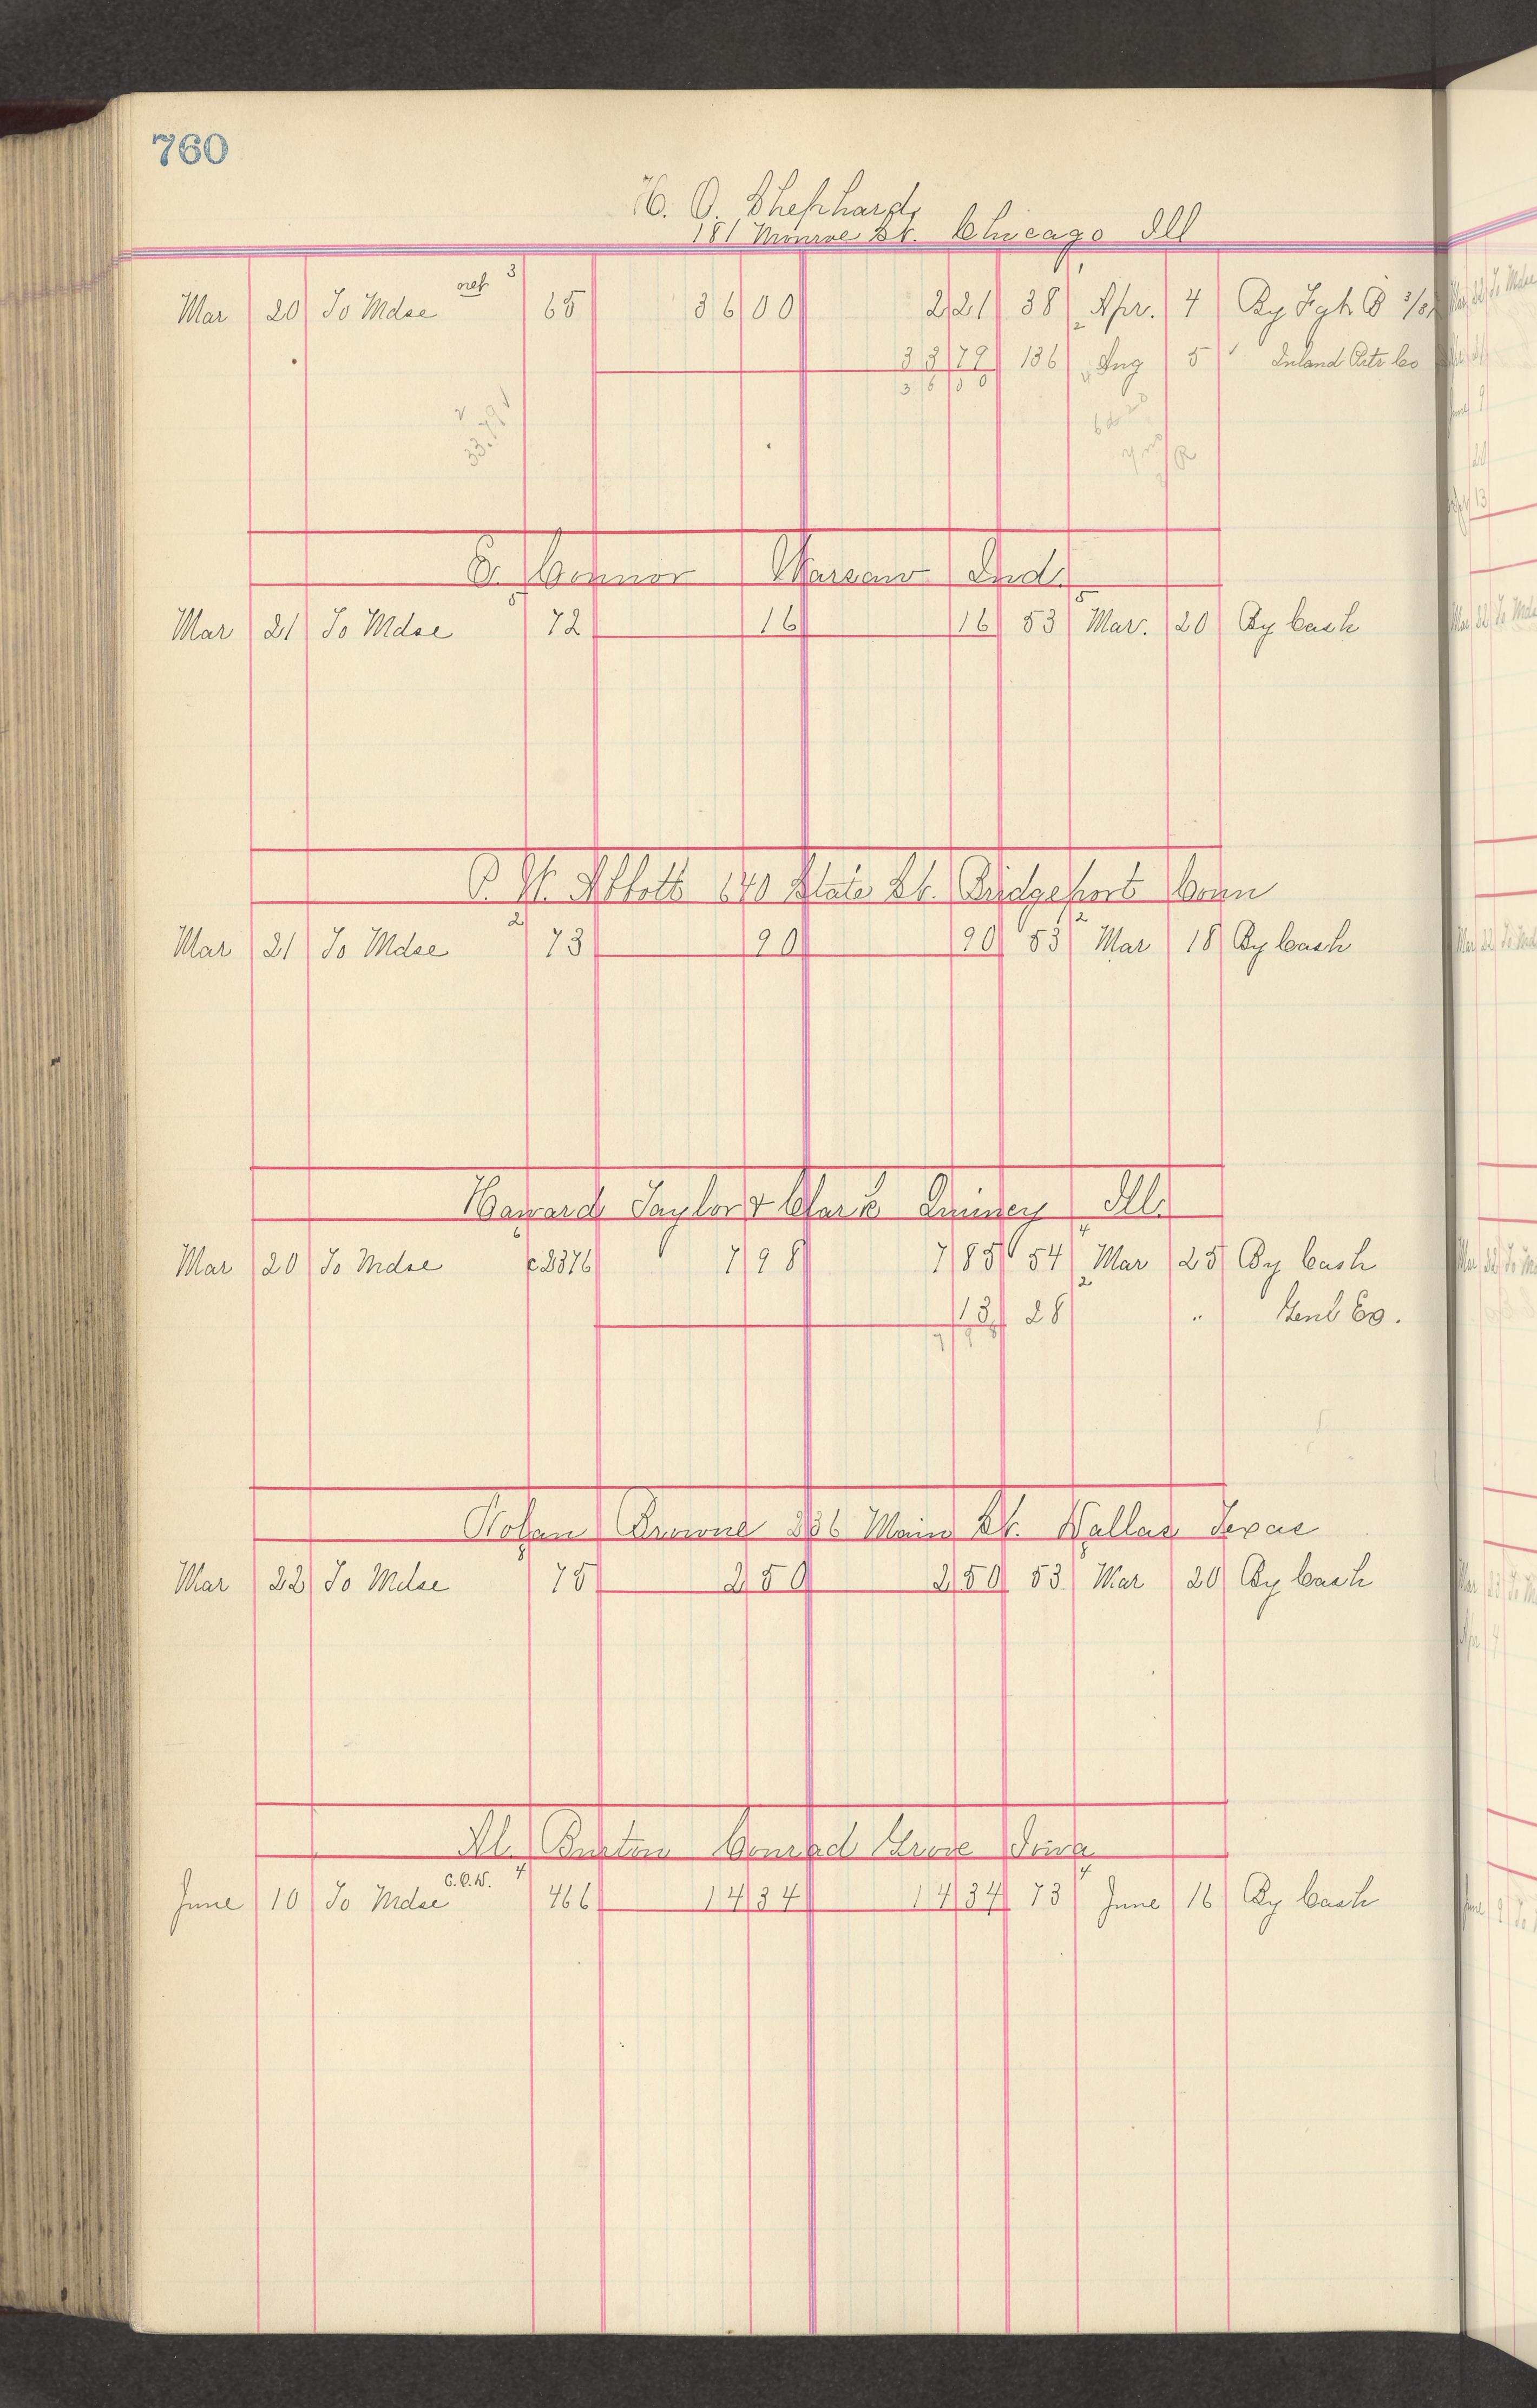 760
H. O. Shephard,
181 Monroe St. Chicago Ill
Mar 20 To Mdse net 3 65 36 00 2 21 38 1 Apr. 4 By Fght B
33 79 136 2 Aug 5 " Inland Arts Co
36 00
33.79
O. Connor Warsaw Ind.
Mar 21 To Mdse 5 72 16 16 53 5 Mar. 20 By Cash
Abbott State St. Bridgeport Conn
Mar 21 To Mdse 2 73 90 90 53 2 Mar 18 By Cash
Taylor & Clark Quincy Ill.
Mar 20 To Mdse 6 c2376 7 98 7 85 54 4 Mar 25 By Cash
13 28 2 " Genl Eo.
7 98
Browne Main St. Dallas Texas
Mar 22 To Mdse 8 75 2 50 2 50 53 8 Mar 20 By Cash
Al. Burton Conrad Grove Iowa
June 10 To Mdse C.O.D. 4 466 14 34 14 34 73 4 June 16 By Cash